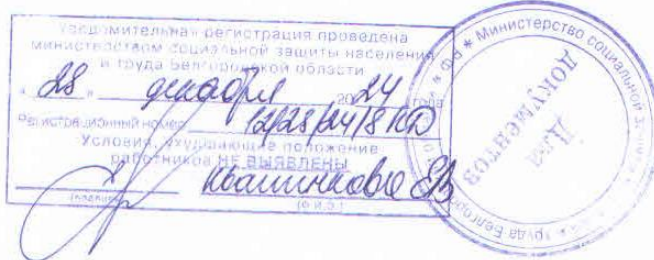 Уведомительная регистрация проведена
министерством социальной защиты населения
и труда Белгородской области
« 28 » декабря 2024 года
Регистрационный номер 12/28/24/8 КД
Условия, ухудшающие положение
работников НЕ ВЫЯВЛЕНЫ
ЕВ
(подпись) (Ф.И.О.)
* Министерство социальной
труда Белгоро
Для
документов